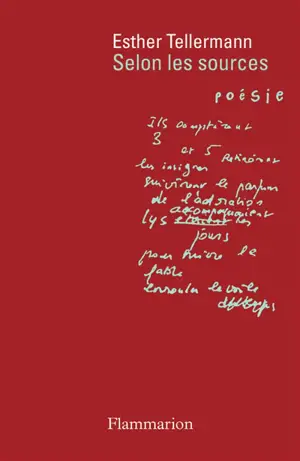 Esther Tellermann
Selon les sources
poésie
Ils comptèrent
3 et 5 retinrent
les insignes
suivirent le parfum
de l'adoration
accompagnaient
lys les
jours
pour suivre la
fable
le voile
Flammarion